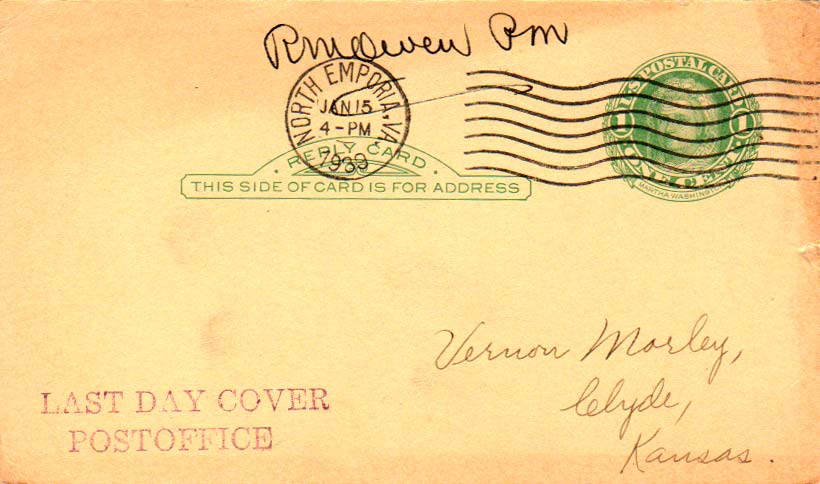 RMOwen Pm
NORTH EMPORIA, VA.
JAN 15
4-PM
1939
REPLY CARD
THIS SIDE OF CARD IS FOR ADDRESS
U.S. POSTAL CARD
1 1
ONE CENT
MARTHA WASHINGTON
Vernon Morley,
Clyde,
Kansas.
LAST DAY COVER
POSTOFFICE